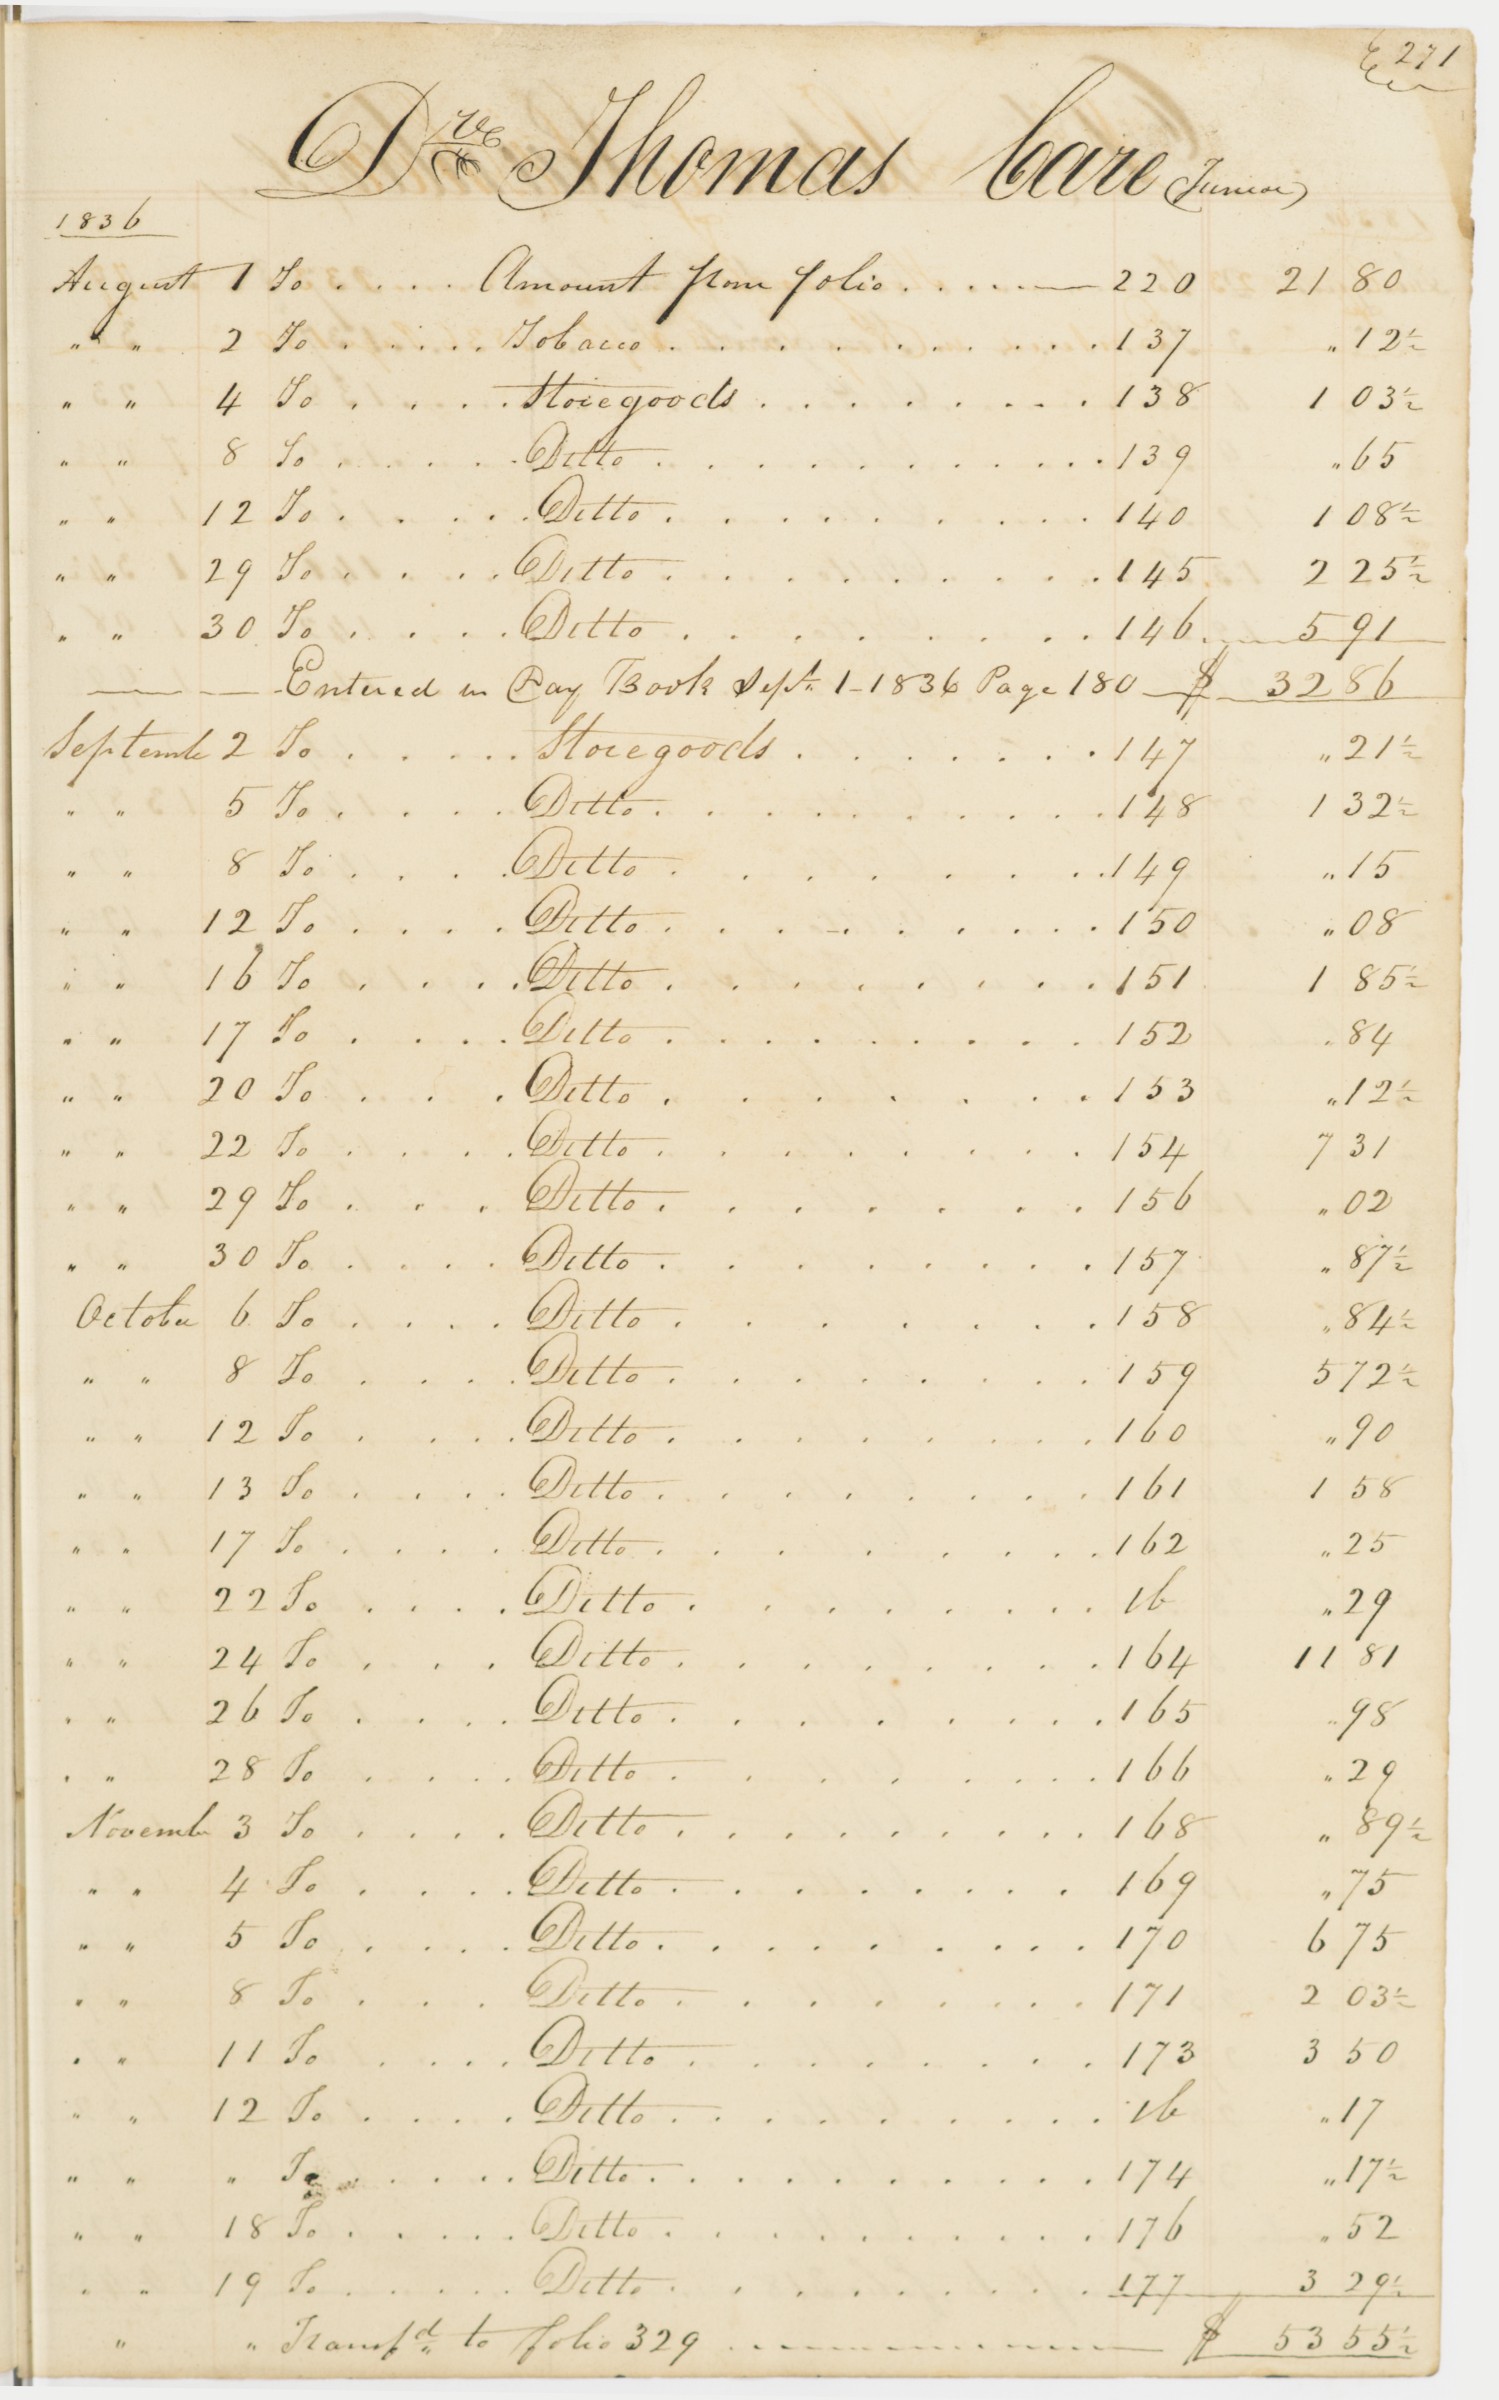 271
Dr Thomas Care Junior
1836
August 1 To .... Amount from folio ..... 220 21 80
" " 2 To ..... Tobacco .......... 137 " 12½
" " 4 To .... Storegoods ........ 138 1 03½
" " 8 To .... Ditto .......... 139 " 65
" " 12 To .... Ditto ......... 140 1 08½
" " 29 To .... Ditto ......... 145 2 25½
" " 30 To .... Ditto ........ 146 5 91
Entered in Day Book Sept 1 - 1836 Page 180 — $ 32 86
Septemb 2 To ..... Storegoods ....... 147 " 21½
" " 5 To .... Ditto ......... 148 1 32½
" " 8 To .... Ditto ........ 149 " 15
" " 12 To .... Ditto ......... 150 " 08
" " 16 To .... Ditto ........ 151 1 85½
" " 17 To .... Ditto ......... 152 " 84
" " 20 To ... Ditto ........ 153 " 12½
" " 22 To .... Ditto ........ 154 7 31
" " 29 To ... Ditto ........ 156 " 02
" " 30 To .... Ditto ........ 157 " 87½
October 6 To .... Ditto ........ 158 " 84½
" " 8 To .... Ditto ........ 159 5 72½
" " 12 To .... Ditto ........ 160 " 90
" " 13 To .... Ditto ........ 161 1 58
" " 17 To .... Ditto ........ 162 " 25
" " 22 To .... Ditto ........ ib " 29
" " 24 To ... Ditto ........ 164 11 81
" " 26 To .... Ditto ........ 165 " 98
" " 28 To .... Ditto ........ 166 " 29
Novemb 3 To .... Ditto ......... 168 " 89½
" " 4 To .... Ditto ........ 169 " 75
" " 5 To .... Ditto ......... 170 6 75
" " 8 To ... Ditto ........ 171 2 03½
" " 11 To .... Ditto ........ 173 3 50
" " 12 To .... Ditto ......... ib " 17
" " " To .... Ditto .......... 174 " 17½
" " 18 To ..... Ditto .......... 176 " 52
" " 19 To ..... Ditto ......... 177 3 29½
" " Transfd to folio 329 — $ 53 55½